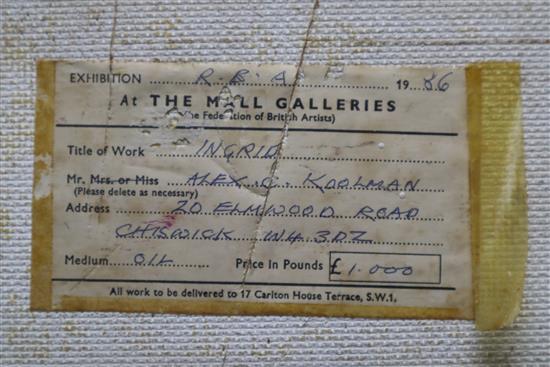 EXHIBITION R.B.A. 19 86
At THE MALL GALLERIES
(the Federation of British Artists)
Title of Work INGRID
Mr. Mrs. or Miss ALEX. C. KOOLMAN
(Please delete as necessary)
Address 20 ELMWOOD ROAD
CHISWICK W4 3DZ
Medium OIL Price in Pounds £1.000
All work to be delivered to 17 Carlton House Terrace, S.W.1.